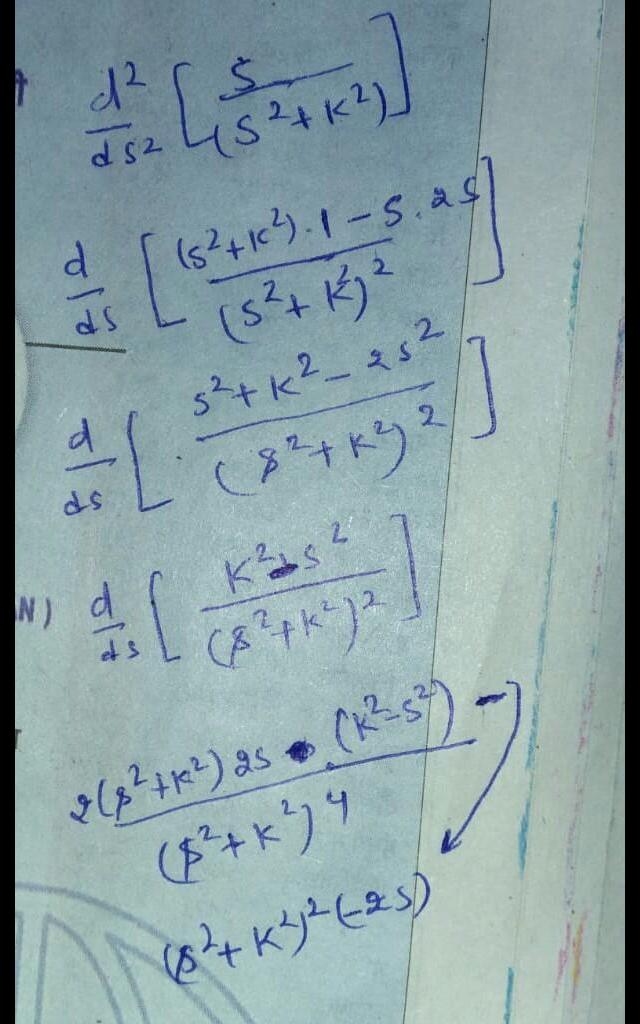 d²/ds² [ s/(s²+k²) ]
d/ds [ ((s²+k²).1 - s.2s)/(s²+k²)² ]
d/ds [ (s²+k²-2s²)/(s²+k²)² ]
N) d/ds [ (k²-s²)/(s²+k²)² ]
2(s²+k²)2s • (k²-s²) - / (s²+k²)⁴
(s²+k²)²(-2s)